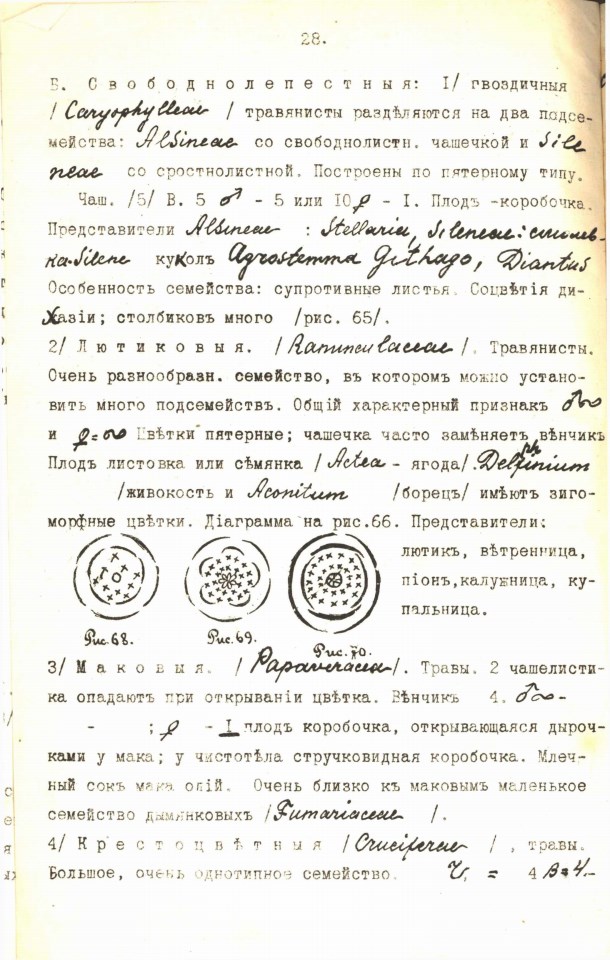 28.
Б. Свободнолепестныя: I/ гвоздичныя
/ Caryophylleae / травянисты раздѣляются на два подсе-
мейства: Alsineae со свободнолистн. чашечкой и Sile
neae со сростнолистной. Построены по пятерному типу.
Чаш. /5/ В. 5 ♂ - 5 или 10 ♀ - I. Плодъ -коробочка.
Представители Alsineae : Stellaria, Sileneae: смолев-
ка-Silene куколь Agrostemma Githago, Diantus
Особенность семейства: супротивные листья. Соцвѣтія ди-
хазіи; столбиковъ много /рис. 65/.
2/ Лютиковыя. /Ranunculaceae/. Травянисты.
Очень разнообразн. семейство, въ которомъ можно устано-
вить много подсемействъ. Общій характерный признакъ ♂∞
и ♀=∞ Цвѣтки пятерные; чашечка часто замѣняетъ вѣнчикъ
Плодъ листовка или сѣмянка /Actea - ягода/. Delphinium
/живокость и Aconitum /борецъ/ имѣютъ зиго-
морфные цвѣтки. Діаграмма на рис.66. Представители:
лютикъ, вѣтренница,
піонъ,калужница, ку-
пальница.
Рис.68. Рис.69. Рис.70.
3/ Маковыя. /Papaveraceae/. Травы. 2 чашелисти-
ка опадаютъ при открываніи цвѣтка. Вѣнчикъ 4. ♂∞-
- ; ♀ - I плодъ коробочка, открывающаяся дыроч-
ками у мака; у чистотѣла стручковидная коробочка. Млеч-
ный сокъ мака опій. Очень близко къ маковымъ маленькое
семейство дымянковыхъ /Fumariaceae /.
4/ Крестоцвѣтныя /Cruciferae / , травы.
Большое, очень однотипное семейство. Ч. = 4 В=4.-